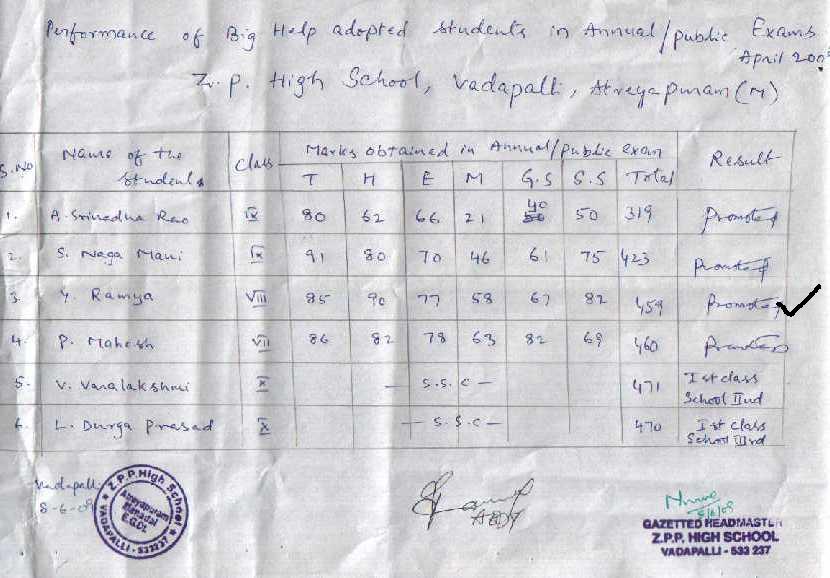 Performance of Big Help adopted students in Annual/public Exams
April 2009
Z.P. High School, Vadapalli, Atreyapuram (M)
S.No Name of the Students Class Marks obtained in Annual/public exam Result
T H E M G.S S.S Total
1. A. Srinadha Rao IX 80 62 66 21 40 50 319 Promoted
2. S. Naga Mani IX 91 80 70 46 61 75 423 Promoted
3. Y. Ramya VIII 85 90 77 58 67 82 459 Promoted
4. P. Mahesh VII 86 82 78 63 82 69 460 Promoted
5. V. Varalakshmi X - S.S.C - 471 Ist class School IInd
6. L. Durga Prasad X - S.S.C - 470 Ist class School IIIrd
Vadapalli
8-6-09
Z.P.P. High School
Atreyapuram
Mandal
E.G.Dt.
VADAPALLI - 533237
8/6/09
GAZETTED HEADMASTER
Z.P.P. HIGH SCHOOL
VADAPALLI - 533 237